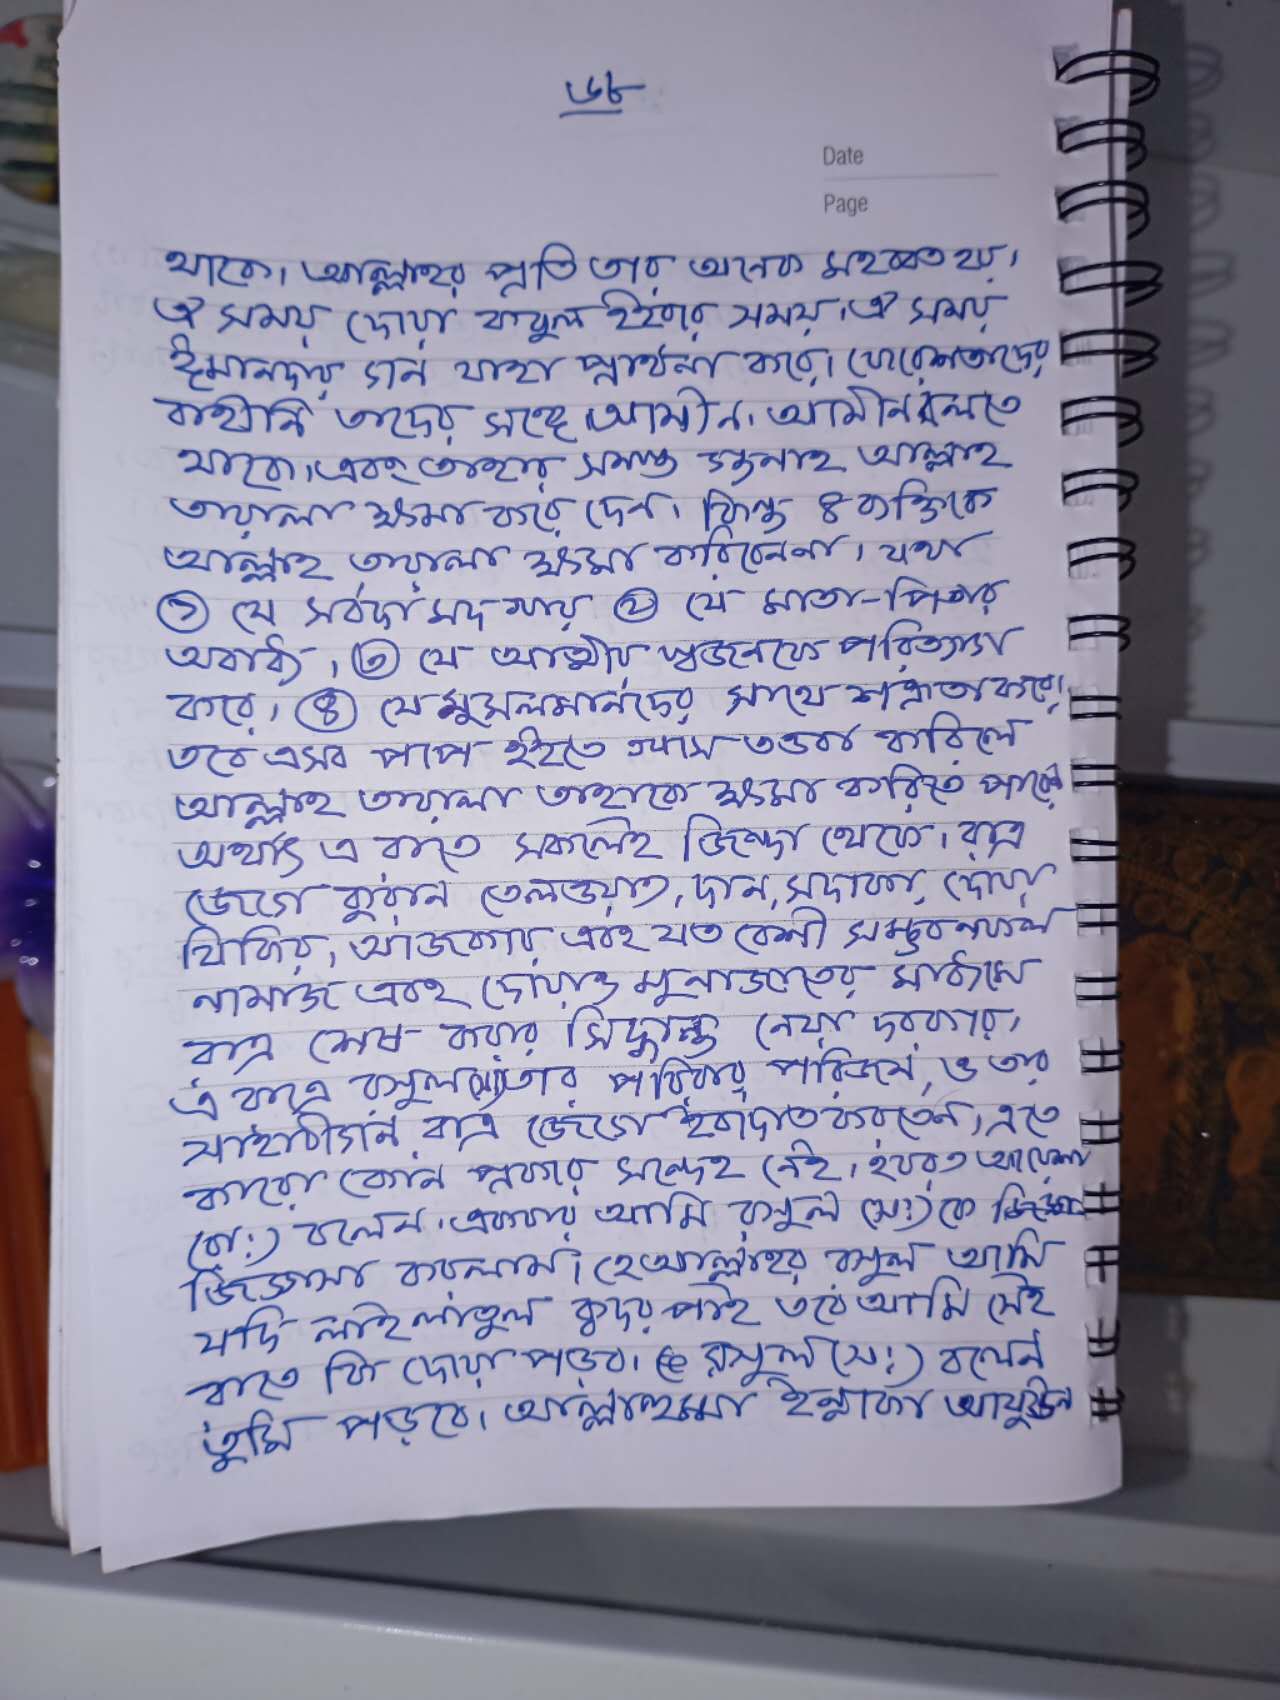 ৬৮
Date
Page
থাকে। আল্লাহর প্রতি তার অনেক মহব্বত হয়।
ঐ সময় দোয়া কবুল হইবার সময়। ঐ সময়
ঈমানদার গন যাহা প্রার্থনা করে। ফেরেশতাদের
বাহীনি তাদের সঙ্গে আমীন। আমীন বলতে
থাকে। এবং তাহার সমস্ত গুনাহ আল্লাহ
তায়ালা ক্ষমা করে দেন। কিন্তু ৪ ব্যক্তিকে
আল্লাহ তায়ালা ক্ষমা করিবেন না। যথা
১ যে সর্বদা মদ খায় ২ যে মাতা-পিতার
অবাধ্য। ৩ যে আত্মীয় স্বজনকে পরিত্যাগ
করে। ৪ যে মুসলমানদের সাথে শত্রুতা করে।
তবে এসব পাপ হইতে খাস তওবা করিলে
আল্লাহ তায়ালা তাহাকে ক্ষমা করিতে পারে
অর্থাৎ এ রাতে সকলেই জিন্দা থেকে। রাত্র
জেগে কুরান তেলওয়াত, দান, সদাকা, দোয়া
যিকির, আজকার এবং যত বেশী সম্ভব নফল
নামাজ এবং দোয়া ও মুনাজাতের মাধ্যমে
রাত্র শেষ করার সিদ্ধান্ত নেয়া দরকার।
এ রাত্রে রসুল (সাঃ) তার পরিবার পরিজন, ও তার
সাহাবীগন রাত্র জেগে ইবাদাত করতেন। এতে
কারো কোন প্রকার সন্দেহ নেই। হযরত আয়েশা
(রাঃ) বলেন। একবার আমি রসুল (সঃ) কে
জিজ্ঞাসা করলাম। হে আল্লাহর রসুল আমি
যদি লাইলাতুল ক্বদর পাই তবে আমি সেই
রাতে কি দোয়া পড়ব। রাসুল (সঃ) বলেন
তুমি পড়বে। আল্লাহুম্মা ইন্নাকা আফুউন